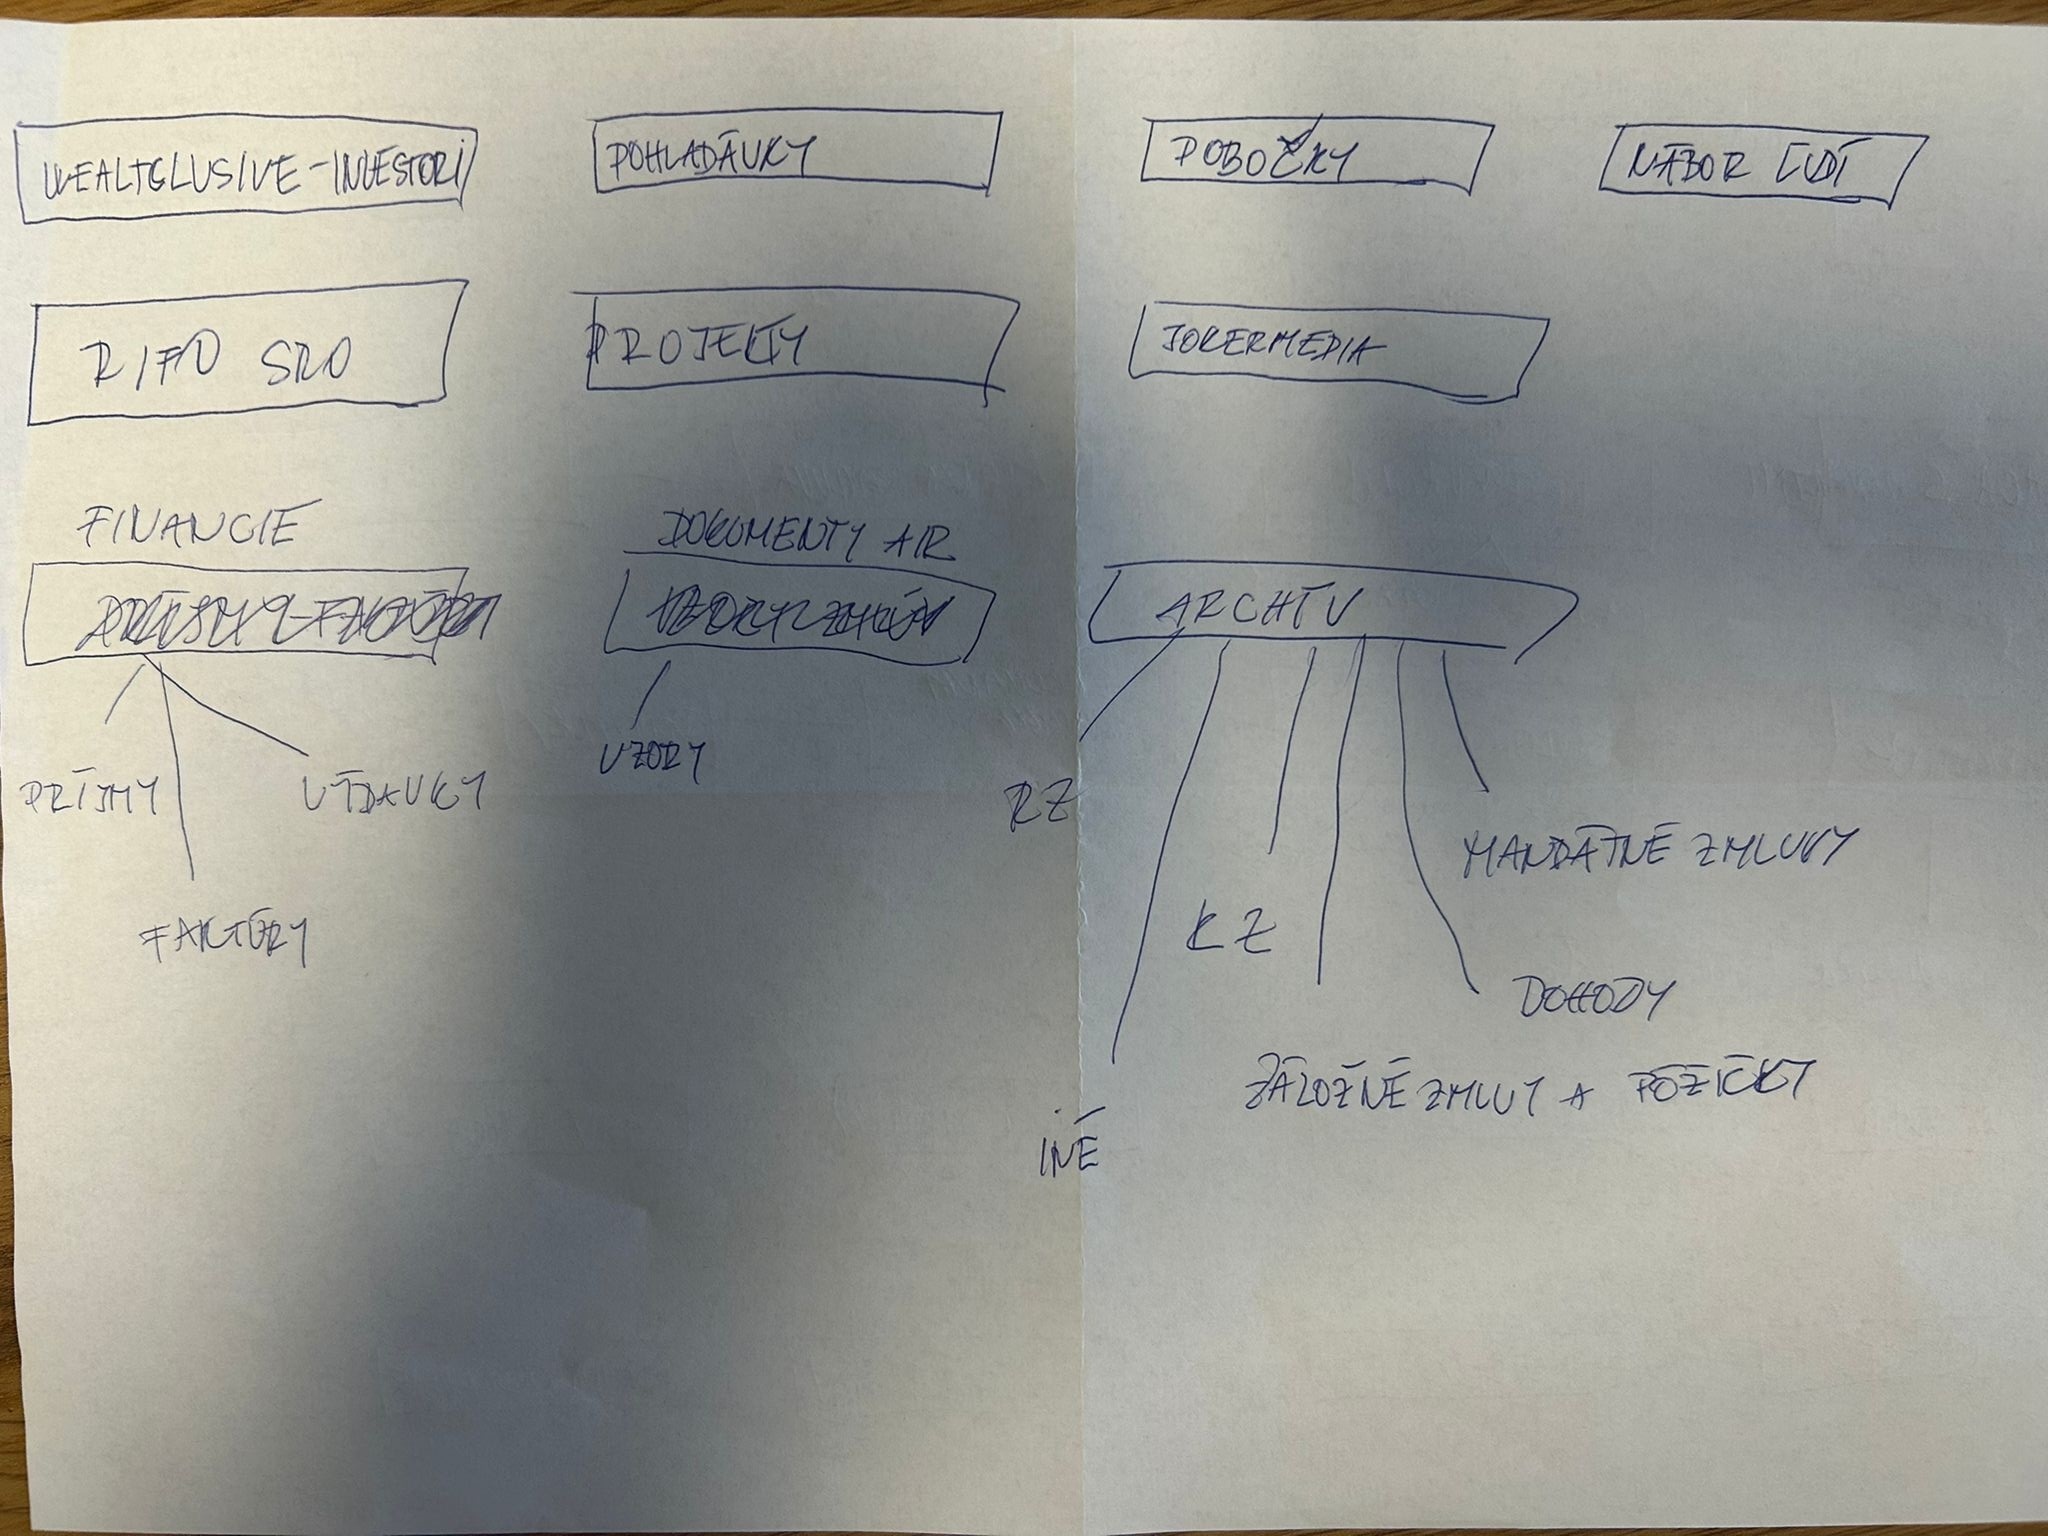 WEALTCLUSIVE-INVESTORI
POHLADÁVKY
POBOČKY
NÁBOR ĽUDÍ
RIFO SRO
PROJEKTY
JOKERMEDIA
FINANCIE
DOKUMENTY AIR
ARCHÍV
PRÍJMY
VÝDAVKY
FAKTÚRY
VZORY
RZ
MANDÁTNÉ ZMLUVY
KZ
DOHODY
ZÁLOŽNÉ ZMLUVY A PÔŽIČKY
INÉ